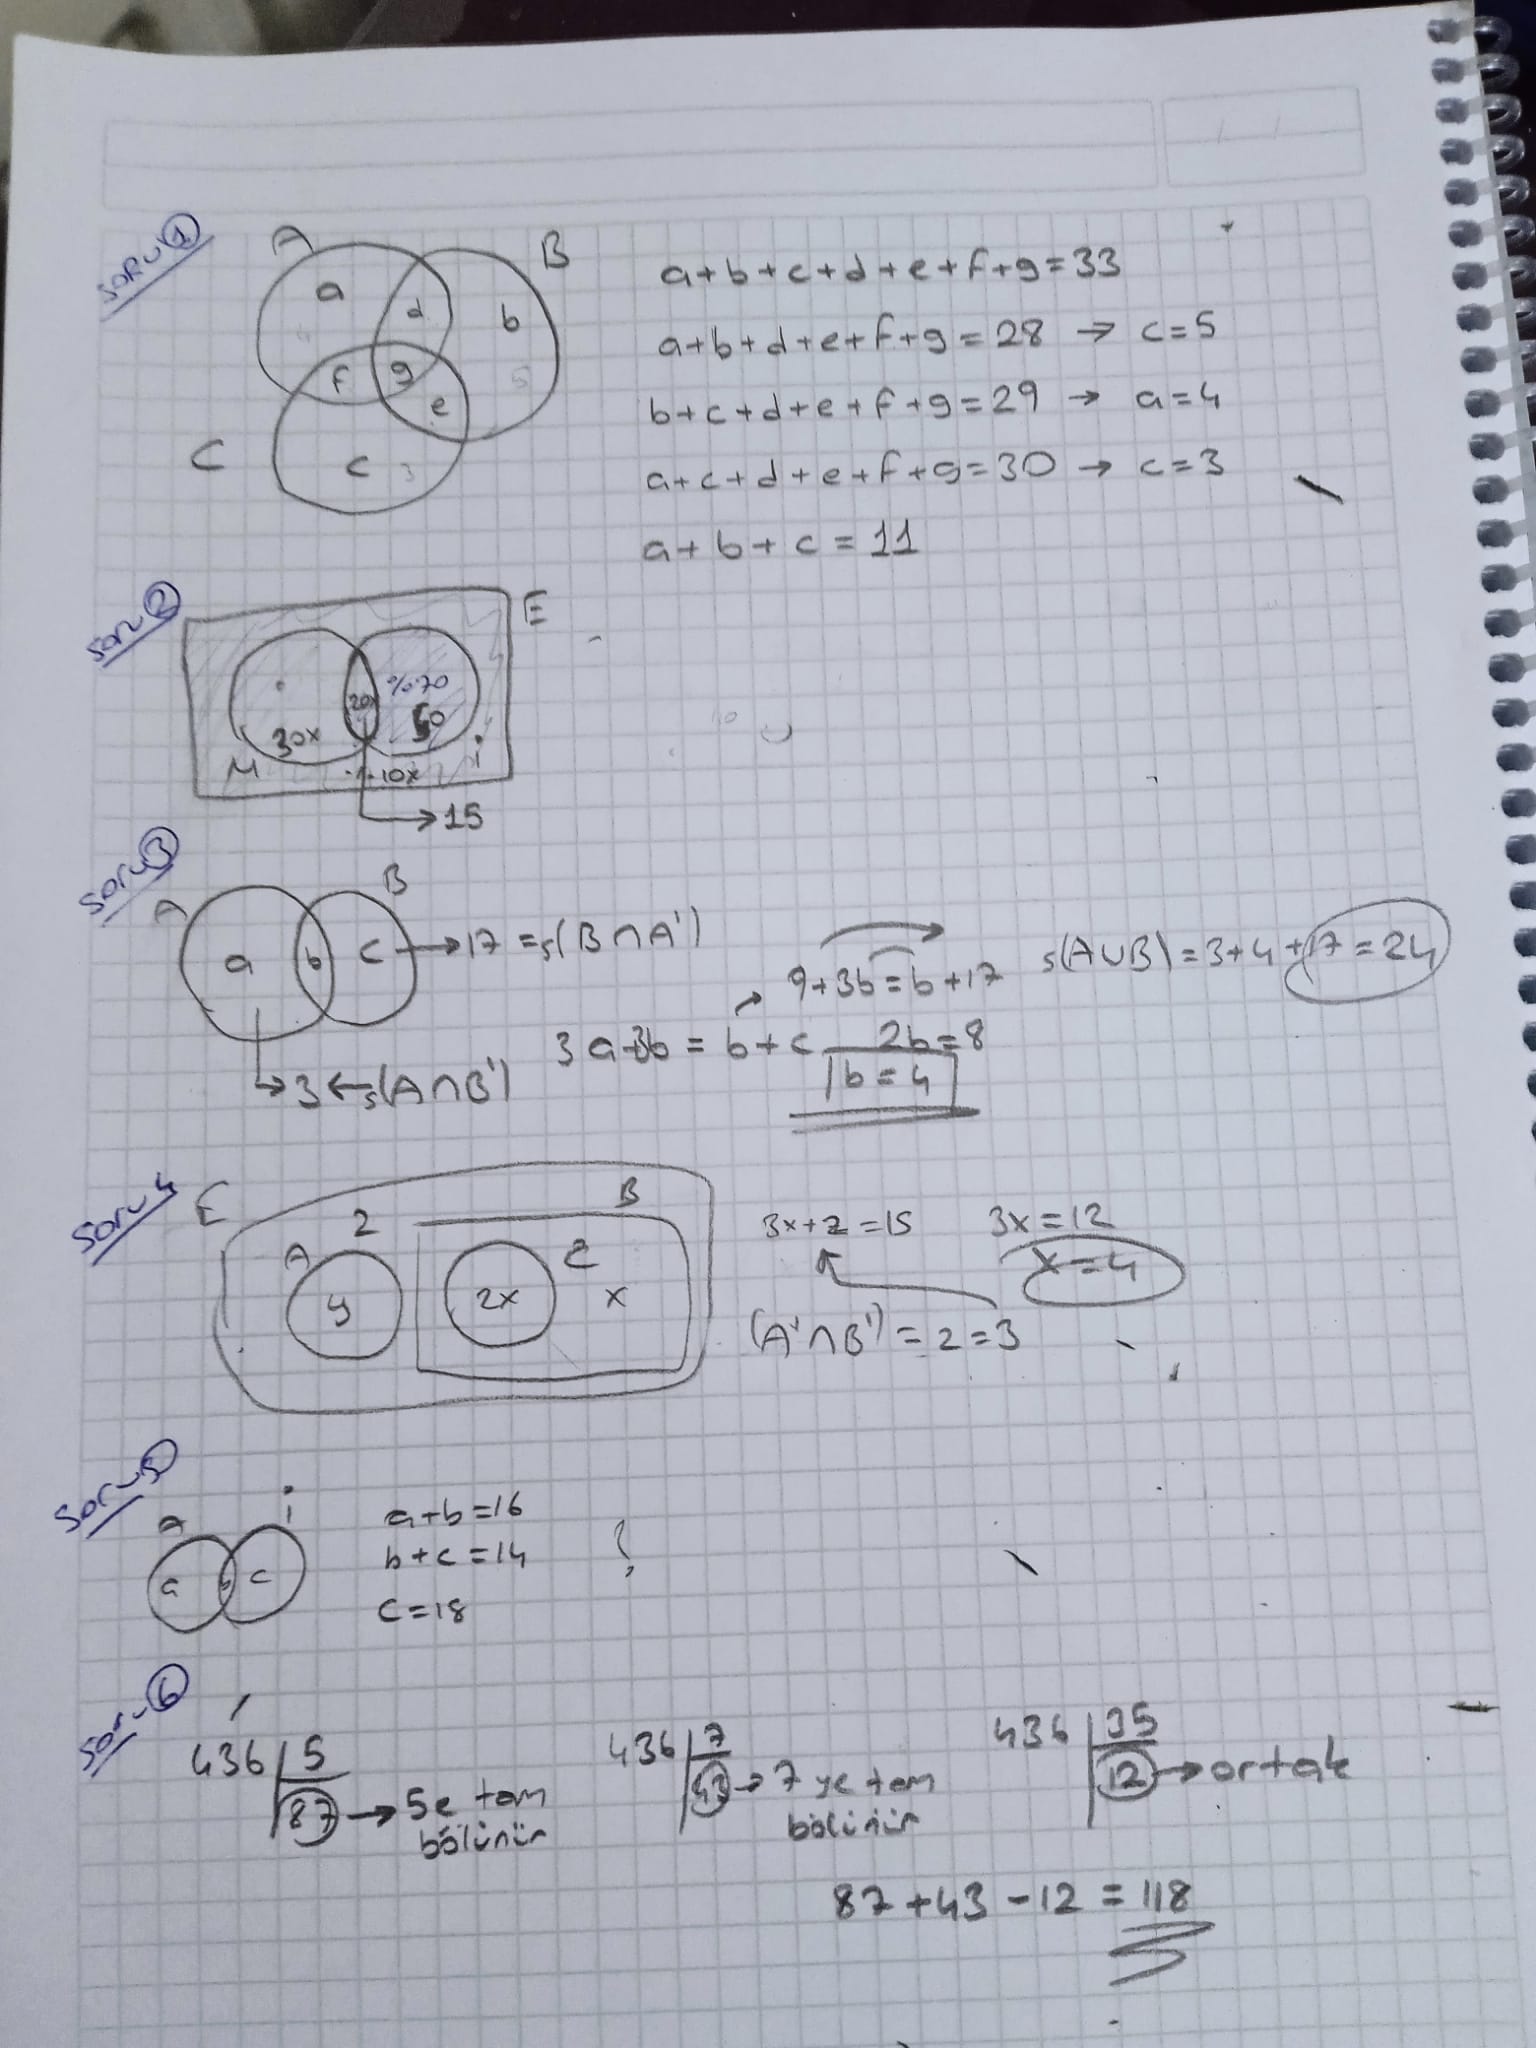 SORU 1
A
B
C
a
d
b
f
g
e
c
3
5
a+b+c+d+e+f+g=33
a+b+d+e+f+g=28 → c=5
b+c+d+e+f+g=29 → a=4
a+c+d+e+f+g=30 → c=3
a+b+c=11
Soru 2
E
%70
20
30x
M
10x
İ
→15
Soru 3
A
B
a
b
c
→17 =s(B∩A')
→3 ←s(A∩B')
9+3b=b+17
3a+3b=b+c
2b=8
b=4
s(A∪B)=3+4+17=24
Soru 4
E
2
B
A
y
2x
2
x
3x+2=15
3x=12
x=4
(A'∩B')=2=3
Soru 5
A
İ
a
b
c
a+b=16
b+c=14
c=18
?
Soru 6
436 5
87 → 5e tam
bölünür
436 7
43 → 7 ye tam
bölünür
436 35
12 → ortak
87+43-12=118